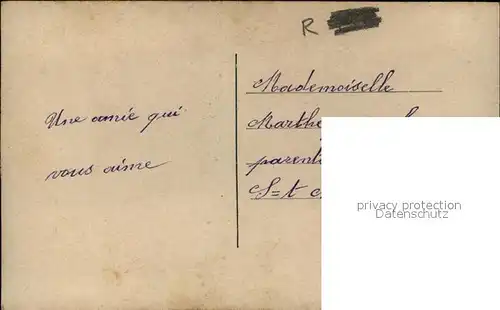 R
Une amie qui
vous aime
Mademoiselle
Marthe
S=t
privacy protection
Datenschutz